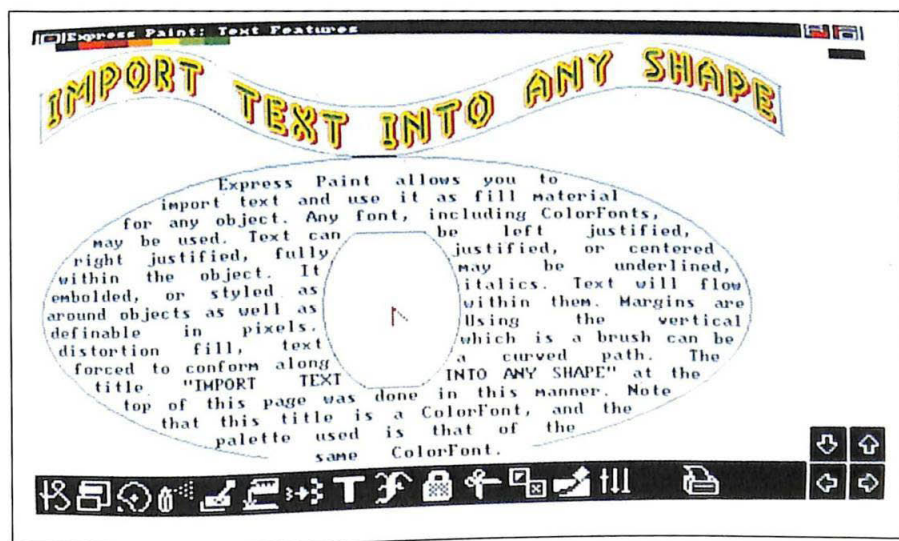 Express Paint: Text Features
IMPORT TEXT INTO ANY SHAPE
Express Paint allows you to
import text and use it as fill material
for any object. Any font, including ColorFonts,
may be used. Text can be left justified,
right justified, fully justified, or centered
within the object. It may be underlined,
embolded, or styled as italics. Text will flow
around objects as well as within them. Margins are
definable in pixels. Using the vertical
distortion fill, text which is a brush can be
forced to conform along a curved path. The
title "IMPORT TEXT INTO ANY SHAPE" at the
top of this page was done in this manner. Note
that this title is a ColorFont, and the
palette used is that of the
same ColorFont.
T